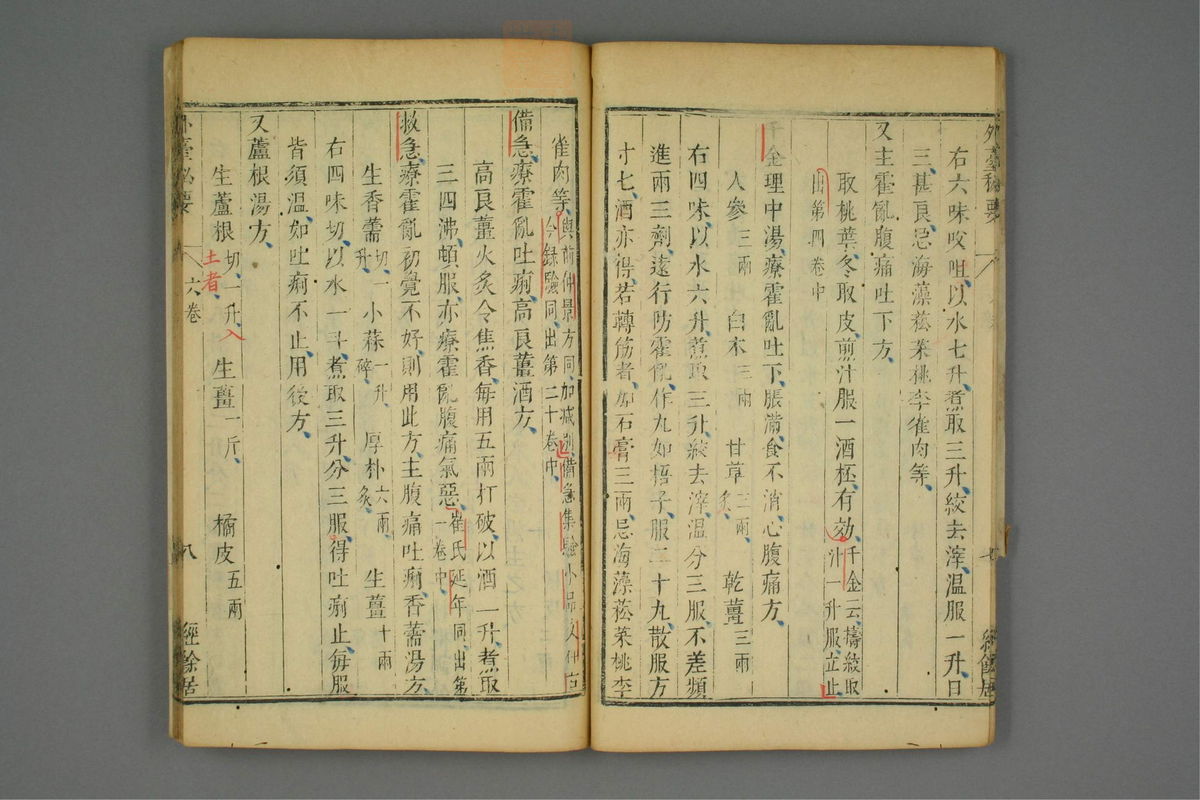 右六味㕮咀以水七升煮取三升絞去滓溫服一升日
三甚良忌海藻菘菜桃李雀肉等
又主霍亂腹痛吐下方
取桃葉冬取皮煎汁服一酒柸有効千金云擣絞取
汁一升服立止
出第四卷中
千金理中湯療霍亂吐下脹滿食不消心腹痛方
人參三兩 白朮三兩 甘草三兩炙 乾薑三兩
右四味以水六升煮取三升絞去滓溫分三服不差頻
進兩三劑遠行防霍亂作丸如梧子服二十丸散服方
寸七酒亦得若轉筋者加石膏三兩忌海藻菘菜桃李
雀肉等與前仲景方同加減別備急集驗小品文仲古
今録驗同出第二十卷中
備急療霍亂吐痢高良薑酒方
高良薑火炙令焦香每用五兩打破以酒一升煮取
三四沸頓服亦療霍亂腹痛氣惡崔氏延年同出第
一卷中
救急療霍亂初覺不好則用此方主腹痛吐痢香薷湯方
生香薷切一升 小蒜一升碎 厚朴六兩炙 生薑十兩
右四味切以水一斗煮取三升分三服得吐痢止每服
皆須溫如吐痢不止用後方
又蘆根湯方
生蘆根切一升 生薑一斤 橘皮五兩
土者
外臺秘要 六卷 八 經餘居
外臺秘要 七 經餘居